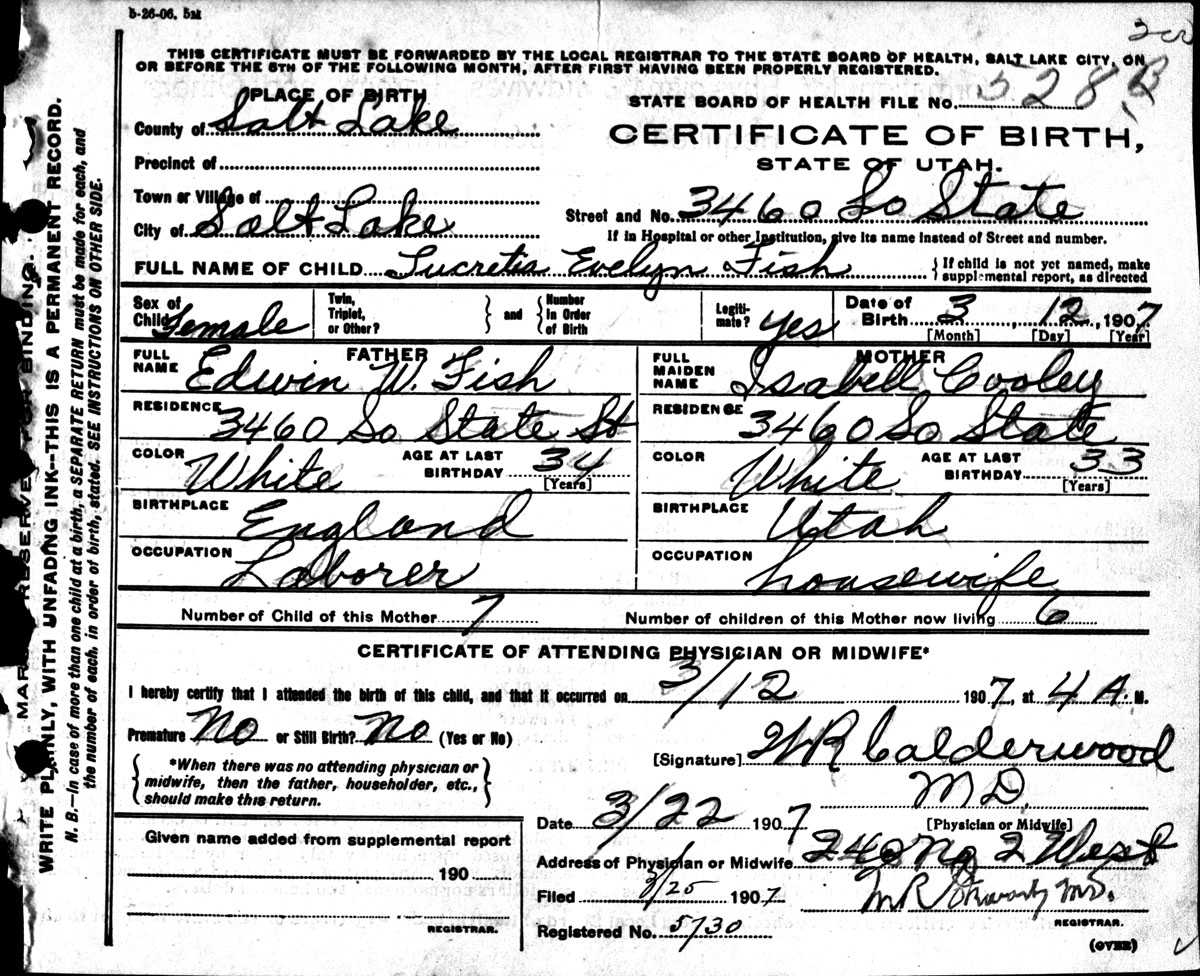 5-26-06. 5M
THIS CERTIFICATE MUST BE FORWARDED BY THE LOCAL REGISTRAR TO THE STATE BOARD OF HEALTH, SALT LAKE CITY, ON
OR BEFORE THE 5TH OF THE FOLLOWING MONTH, AFTER FIRST HAVING BEEN PROPERLY REGISTERED.
PLACE OF BIRTH
STATE BOARD OF HEALTH FILE No. 528 B
County of Salt Lake
CERTIFICATE OF BIRTH,
Precinct of
STATE OF UTAH.
Town or Village of
Street and No. 3460 So State
City of Salt Lake
If in Hospital or other Institution, give its name instead of Street and number.
FULL NAME OF CHILD Lucretia Evelyn Fish
{ If child is not yet named, make
supplemental report, as directed
Sex of
Child Female
Twin,
Triplet,
or Other?
} and {
Number
in Order
of Birth
Legiti-
mate? Yes
Date of
Birth 3, 12, 1907
[Month] [Day] [Year]
FATHER
FULL
NAME Edwin W. Fish
MOTHER
FULL
MAIDEN
NAME Isabell Cooley
RESIDENCE 3460 So State St
RESIDENCE 3460 So State
COLOR White
AGE AT LAST
BIRTHDAY 34
[Years]
COLOR White
AGE AT LAST
BIRTHDAY 33
[Years]
BIRTHPLACE England
BIRTHPLACE Utah
OCCUPATION Laborer
OCCUPATION housewife
Number of Child of this Mother 7
Number of children of this Mother now living 6
CERTIFICATE OF ATTENDING PHYSICIAN OR MIDWIFE*
I hereby certify that I attended the birth of this child, and that it occurred on 3/12 1907, at 4 A. M.
Premature No or Still Birth? No (Yes or No)
[Signature] WR Calderwood
MD.
[Physician or Midwife]
{ *When there was no attending physician or
midwife, then the father, householder, etc.,
should make this return. }
Date 3/22 1907
Address of Physician or Midwife 240 No 2 West
Filed 3/25 1907
M.D.
REGISTRAR.
Registered No. 5730
(OVER)
Given name added from supplemental report
190
REGISTRAR.
MARGIN RESERVED FOR BINDING.
WRITE PLAINLY, WITH UNFADING INK--THIS IS A PERMANENT RECORD.
N. B.—In case of more than one child at a birth, a SEPARATE RETURN must be made for each, and
the number of each, in order of birth, stated. SEE INSTRUCTIONS ON OTHER SIDE.